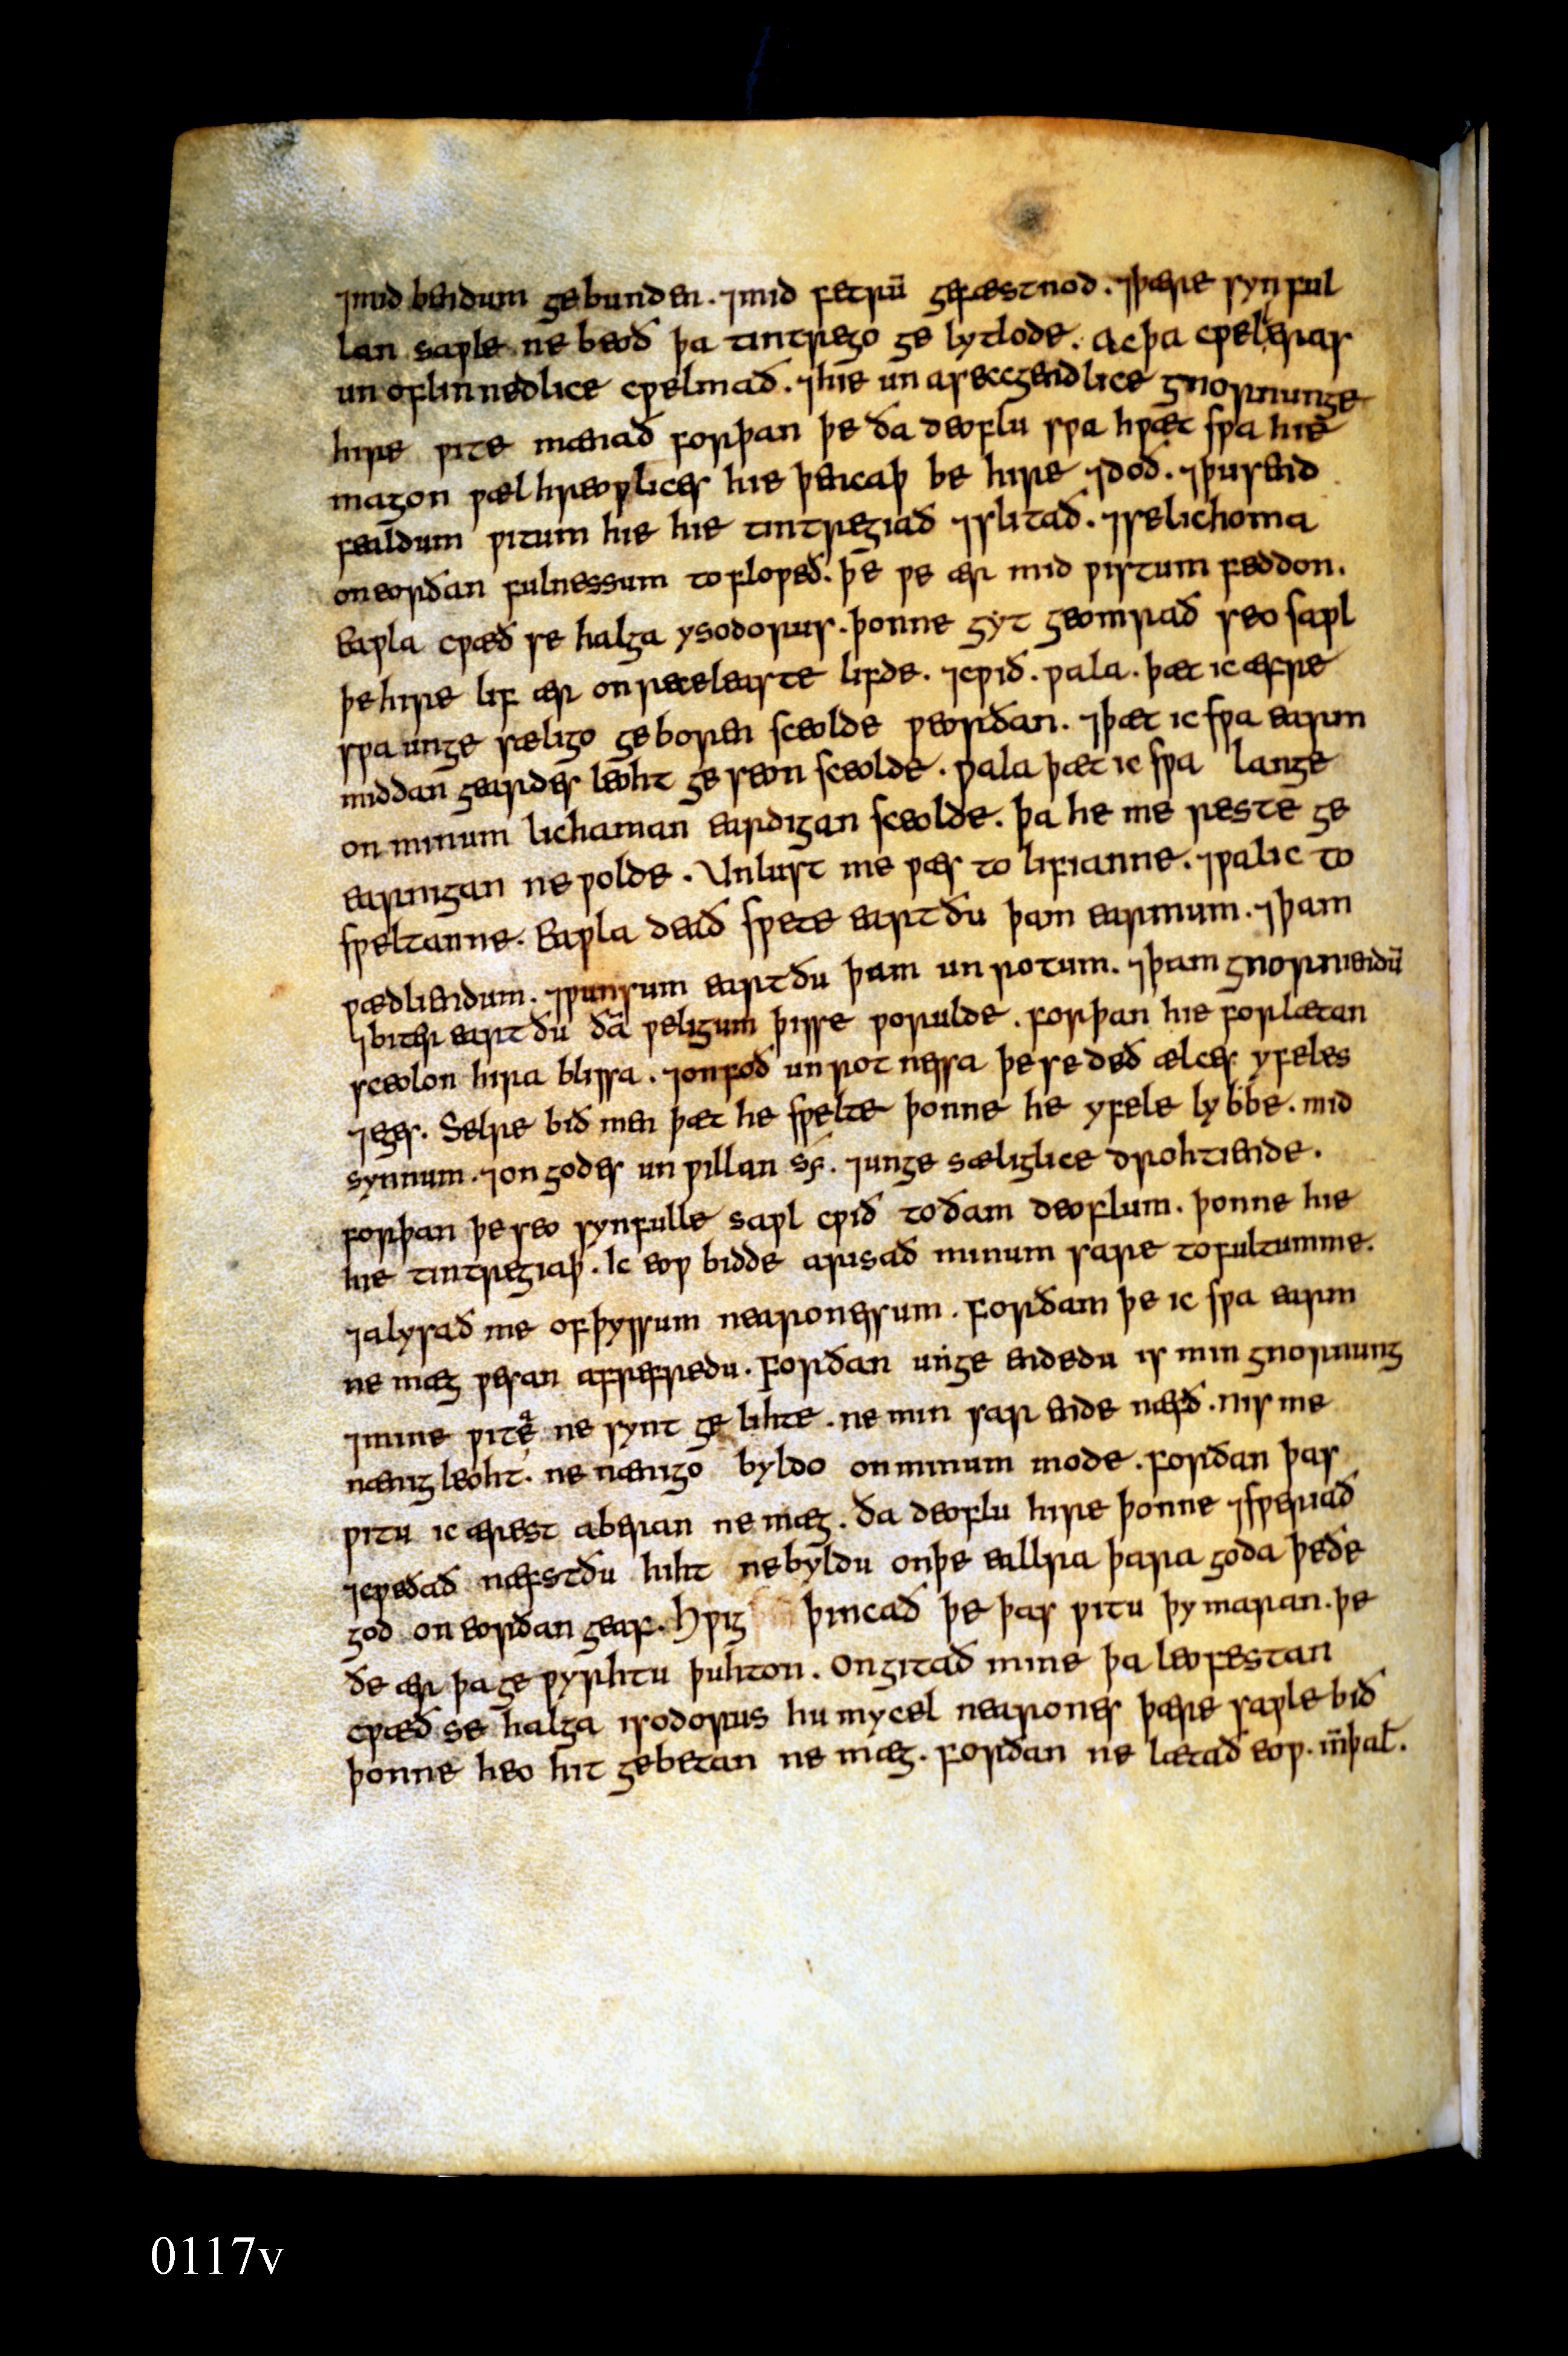 ⁊mid bendum gebunden. ⁊mid fetrū gefæstnod. ⁊þære synful
lan saƿle ne beoð þa tintrego ge lytlode. Ac þa cƿeleras
un oflinnedlice cƿelmað. ⁊hie un areccgendlice gnornunge
hire ƿite mænað forþan þe ða deoflu sƿa hƿæt sƿa hie
magon ƿælhreoƿlices hie þencaþ be hire ⁊doð. ⁊þusend
fealdum ƿitum hie hie tintregiað ⁊slitað. ⁊se lichoma
on eorðan fulnessum to floƿeð. þē ƿe ær mid ƿistum feddon.
Eaƿla cƿæð se halga ysodorius. þonne gyt geomrað seo saƿl
þe hire lif ær on receleaste lifde. ⁊cƿið. ƿala. þæt ic æfre
sƿa unge sæligo geboren sceolde ƿeorðan. ⁊þæt ic sƿa earm
middan geardes leoht ge seon sceolde. ƿala þæt ic sƿa lange
on minum lichaman eardigan sceolde. þa he me reste ge
earnigan ne ƿolde. Unlust me ƿæs to lifianne. ⁊ƿalic to
sƿeltanne. Eaƿla deað sƿete eart ðu þam earmum. ⁊þam
ƿædliendum. ⁊ƿunsum eart ðu þam un rotum. ⁊þam gnorniendū
⁊biter eart ðu ðā ƿeligum þisse ƿorulde. forþan hie forlætan
sceolon hira blissa. ⁊onfoð un rot nessa þe se deð ælces yfeles
⁊eges. Selre bið men þæt he sƿelte þonne he yfele lybbe. mid
synnum. ⁊on godes un ƿillan sȳ. ⁊unge sæliglice drohtiende.
forþan þe seo synfulle saƿl cƿið to ðam deoflum. þonne hie
hie tintregiaþ. Ic eoƿ bidde arisað minum sare to fultumme.
⁊alysað me of þyssum nearonessum. Forðam þe ic sƿa earm
ne mæg ƿesan afrefredu. Forðan unge endedu is min gnornung
⁊mine ƿite ne synt ge lihte. ne min sar ende næfð. nis me
nænig leoht. ne nænigo byldo on minum mode. forðan þas
ƿitu ic ærest aberan ne mæg. ða deoflu hire þonne ⁊sƿeriað
⁊cƿeðað næfst ðu hiht ne byldu on þe eallra þara goda þe ðe
god on eorðan geaf. Hƿig þincað þe þas ƿitu þy maran. þe
ðe ær þa ge ƿyrhtu þuhton. Ongitað mine þa leofestan
cƿæð se halga isodorius hu mycel nearones þære saƿle bið
þonne heo hit gebetan ne mæg. forðan ne lætað eoƿ.